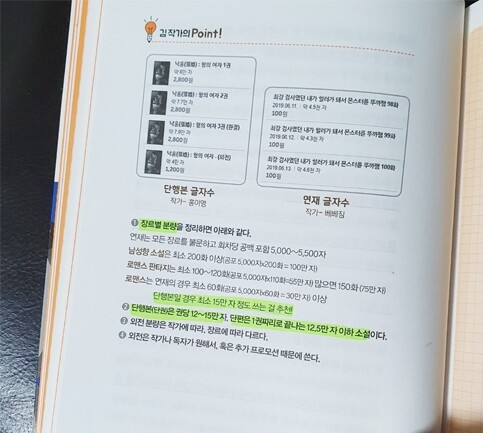 김작가의 Point!
낙음(落婬) : 왕의 여자 1권
약 8만 자
2,800원
낙음(落婬) : 왕의 여자 2권
약 7.7만 자
2,800원
낙음(落婬) : 왕의 여자 3권 (완결)
약 7.9만 자
2,800원
낙음(落婬) : 왕의 여자 - (외전)
약 4만 자
1,200원
단행본 글자수
작가 - 홍이영
최강 검사였던 내가 힐러가 돼서 몬스터를 뚜까팸 98화
2019.06.11. 약 4.5천 자
100원
최강 검사였던 내가 힐러가 돼서 몬스터를 뚜까팸 99화
2019.06.12. 약 4.3천 자
100원
최강 검사였던 내가 힐러가 돼서 몬스터를 뚜까팸 100화
2019.06.13. 약 4.6천 자
100원
연재 글자수
작가 - 베베짐
❶ 장르별 분량을 정리하면 아래와 같다.
연재는 모든 장르를 불문하고 회차당 공백 포함 5,000~5,500자
남성향 소설은 최소 200화 이상(공포 5,000자x200화 = 100만 자)
로맨스 판타지는 최소 100~120화(공포 5,000자x110화=55만 자) 많으면 150화 (75만 자)
로맨스는 연재의 경우 최소 60화(공포 5,000자x60화 = 30만 자) 이상
단행본일 경우 최소 15만 자 정도 쓰는 걸 추천!
❷ 단행본(단권)은 권당 12~15만 자, 단편은 1권짜리로 끝나는 12.5만 자 이하 소설이다.
❸ 외전 분량은 작가에 따라, 장르에 따라 다르다.
❹ 외전은 작가나 독자가 원해서, 혹은 추가 프로모션 때문에 쓴다.